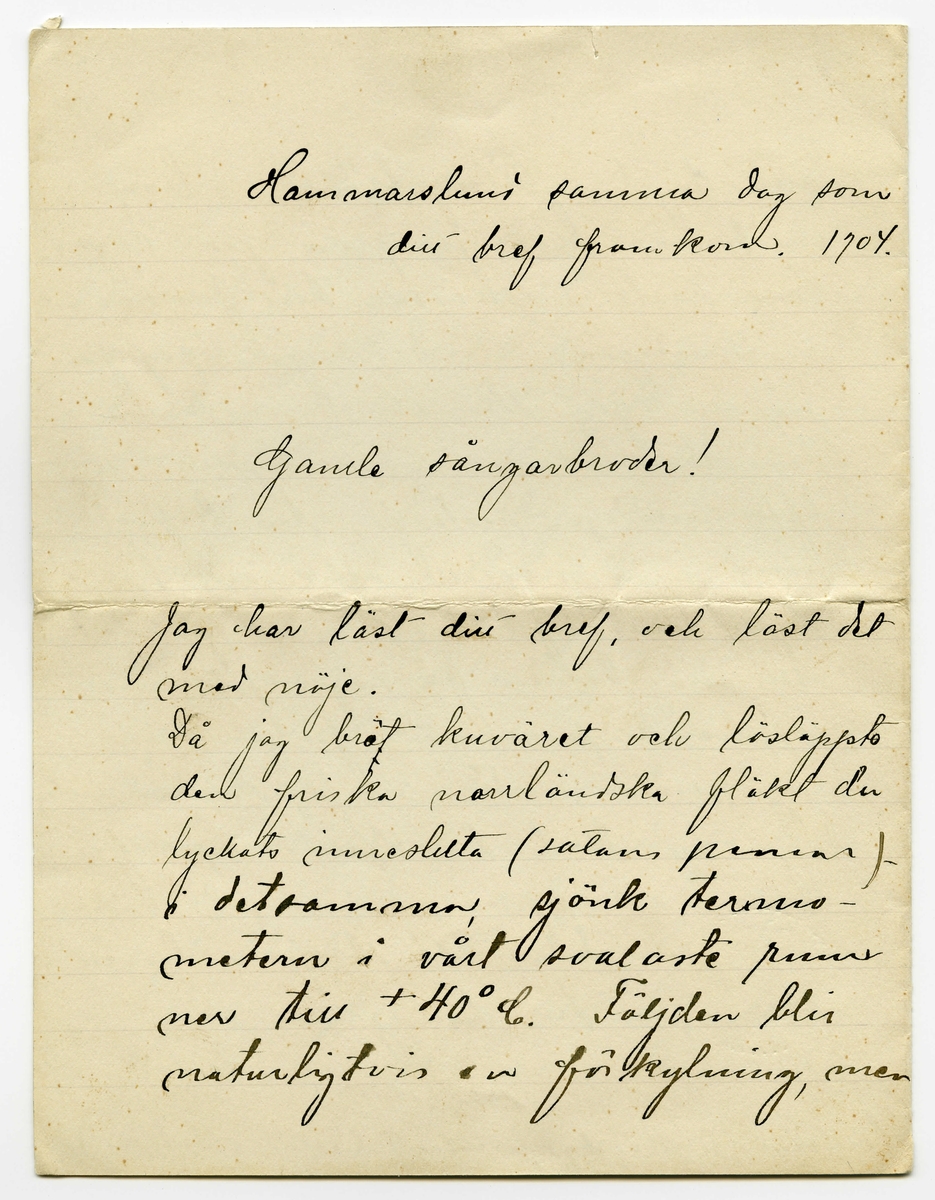 Hammarslund samma dag som
ditt bref framkom. 1904.
Gamle sångarbroder!
Jag har läst ditt bref, och läst det
med nöje.
Då jag bröt kuväret och lössläppte
den friska norrländska fläkt du
lyckats innesluta (satans pennar)
i detsamma, sjönk termo-
metern i vårt svalaste rum
ner till + 40° C. Följden blir
naturligtvis en förkylning, men